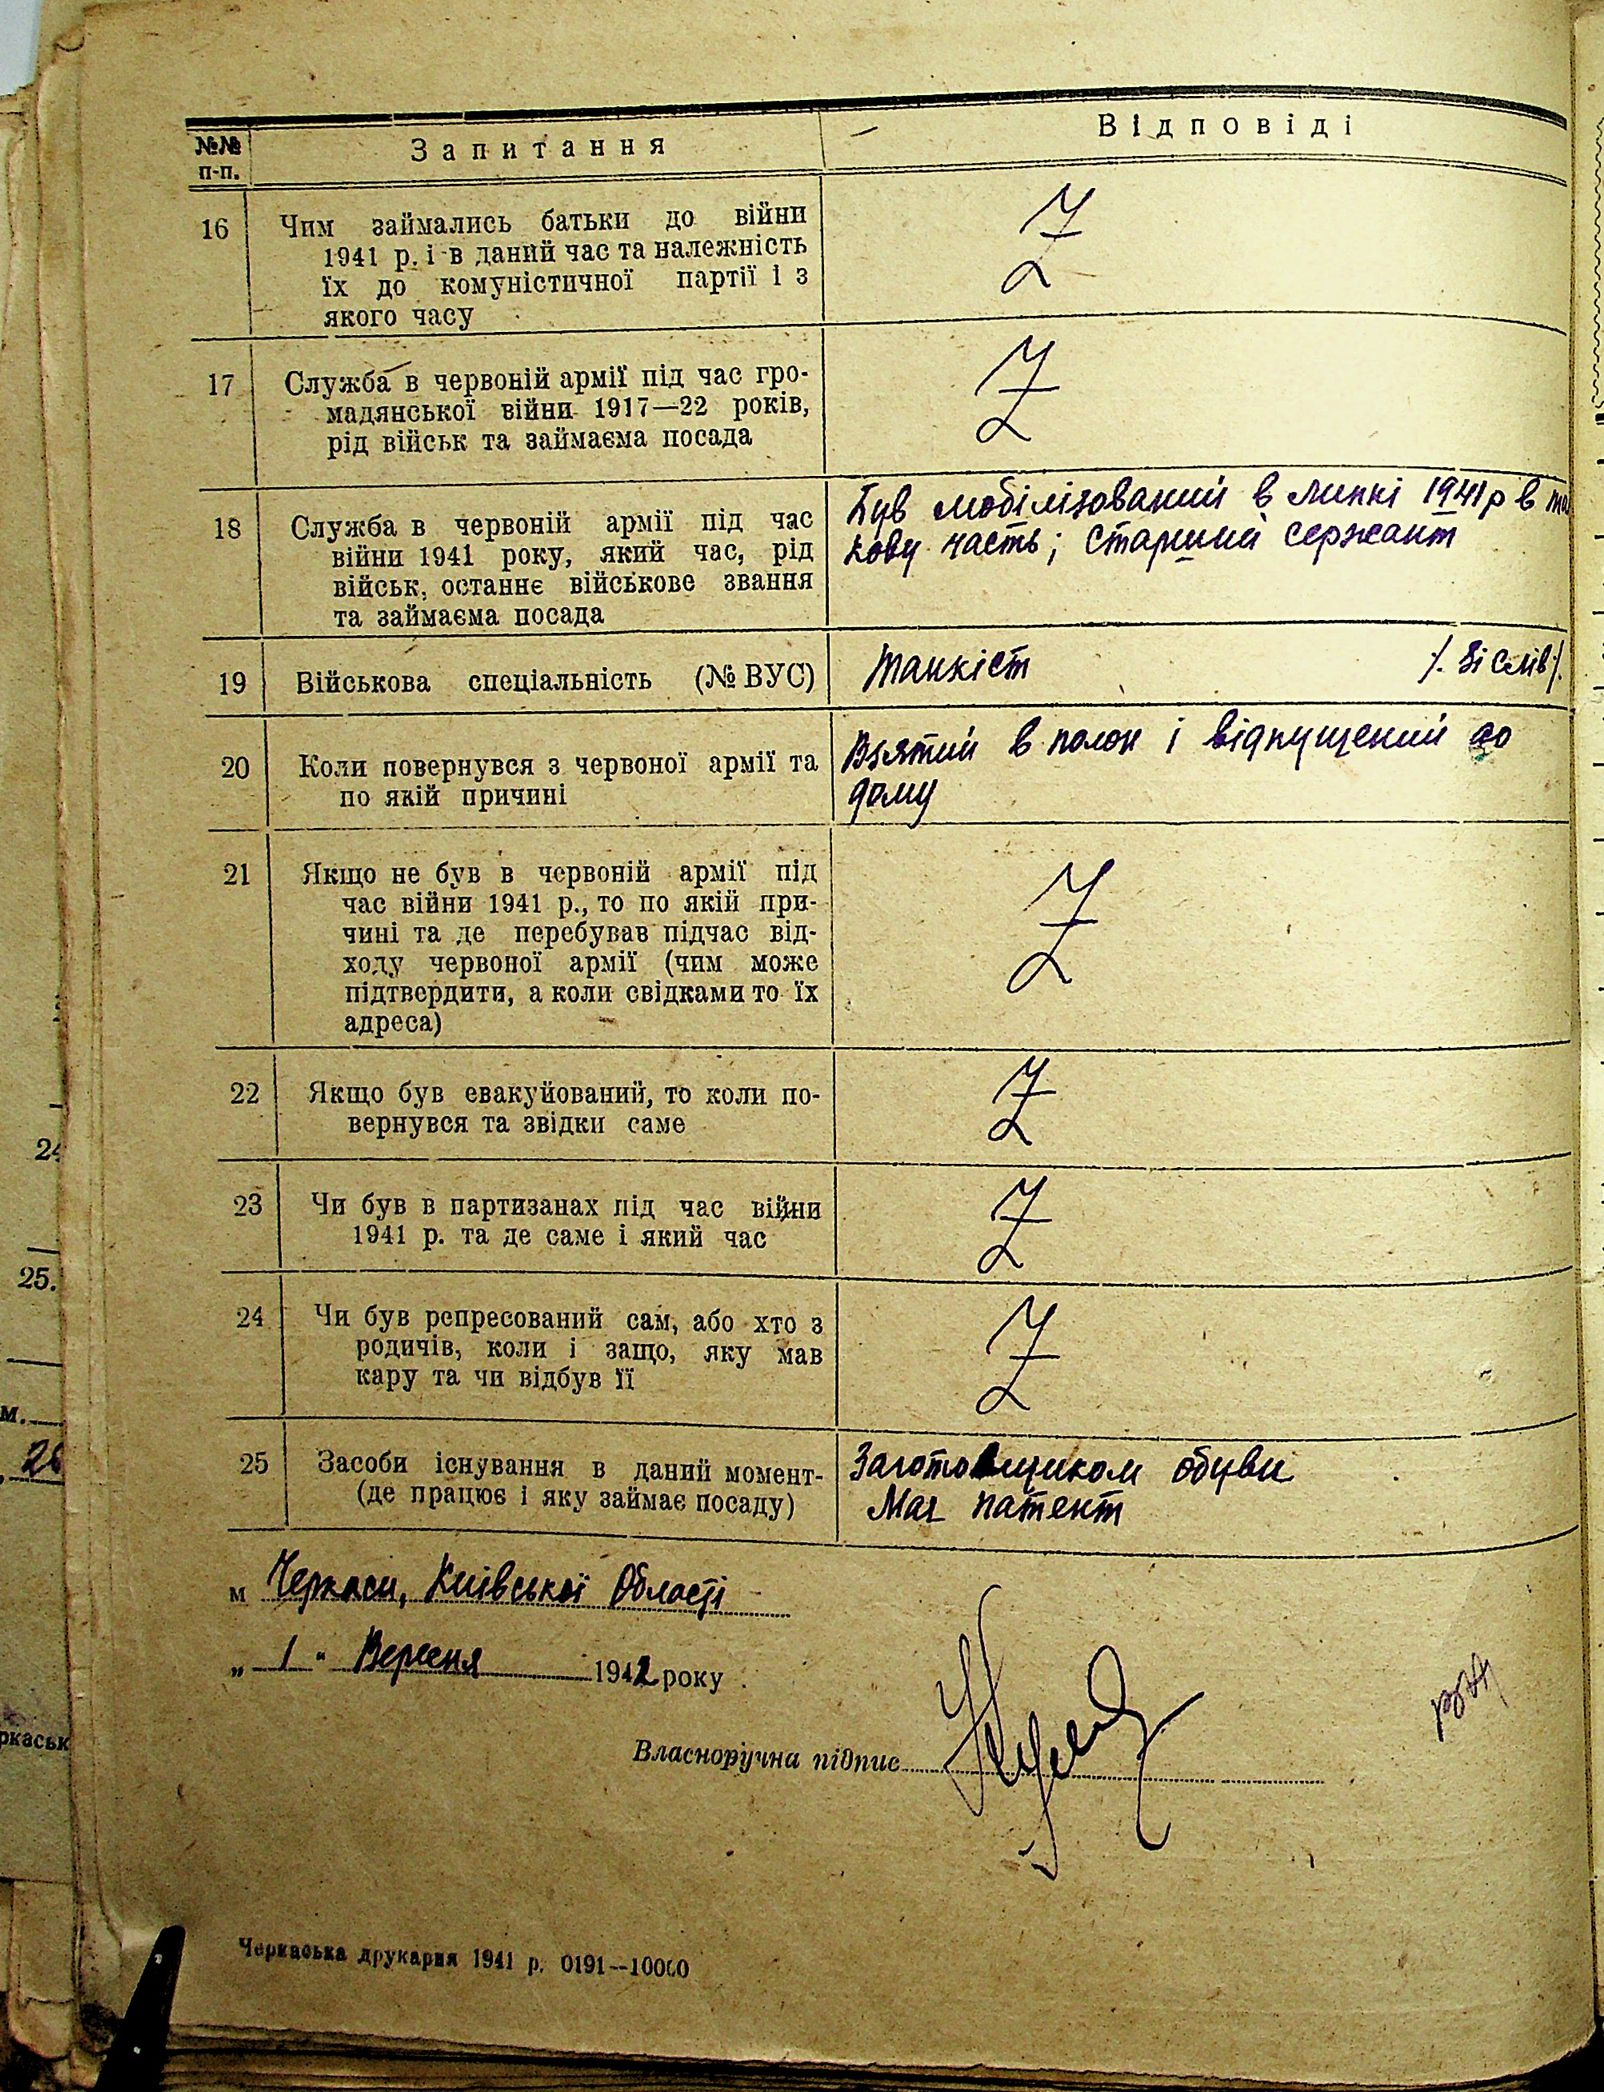 №№ п-п. Запитання Відповіді
16 Чим займались батьки до війни
1941 р. і в даний час та належність
їх до комуністичної партії і з
якого часу
17 Служба в червоній армії під час гро-
мадянської війни 1917—22 років,
рід військ та займаєма посада
18 Служба в червоній армії під час
війни 1941 року, який час, рід
військ, останнє військове звання
та займаєма посада
Був мобілізований в липні 1941 р в та
кову часть; старший сержант
19 Військова спеціальність (№ ВУС)
Танкіст /. Зі слів /.
20 Коли повернувся з червоної армії та
по якій причині
Взятий в полон і відпущений до
дому
21 Якщо не був в червоній армії під
час війни 1941 р., то по якій при-
чині та де перебував підчас від-
ходу червоної армії (чим може
підтвердити, а коли свідками то їх
адреса)
22 Якщо був евакуйований, то коли по-
вернувся та звідки саме
23 Чи був в партизанах під час війни
1941 р. та де саме і який час
24 Чи був репресований сам, або хто з
родичів, коли і защо, яку мав
кару та чи відбув її
25 Засоби існування в даний момент-
(де працює і яку займає посаду)
Заготовщиком обуви
Має патент
м Черкаси, Київської Області
„ 1 " Вересня 1942 року
Власноручна підпис
Черкаська друкарня 1941 р. 0191—10000
24
25.
м.
26
ркаськ